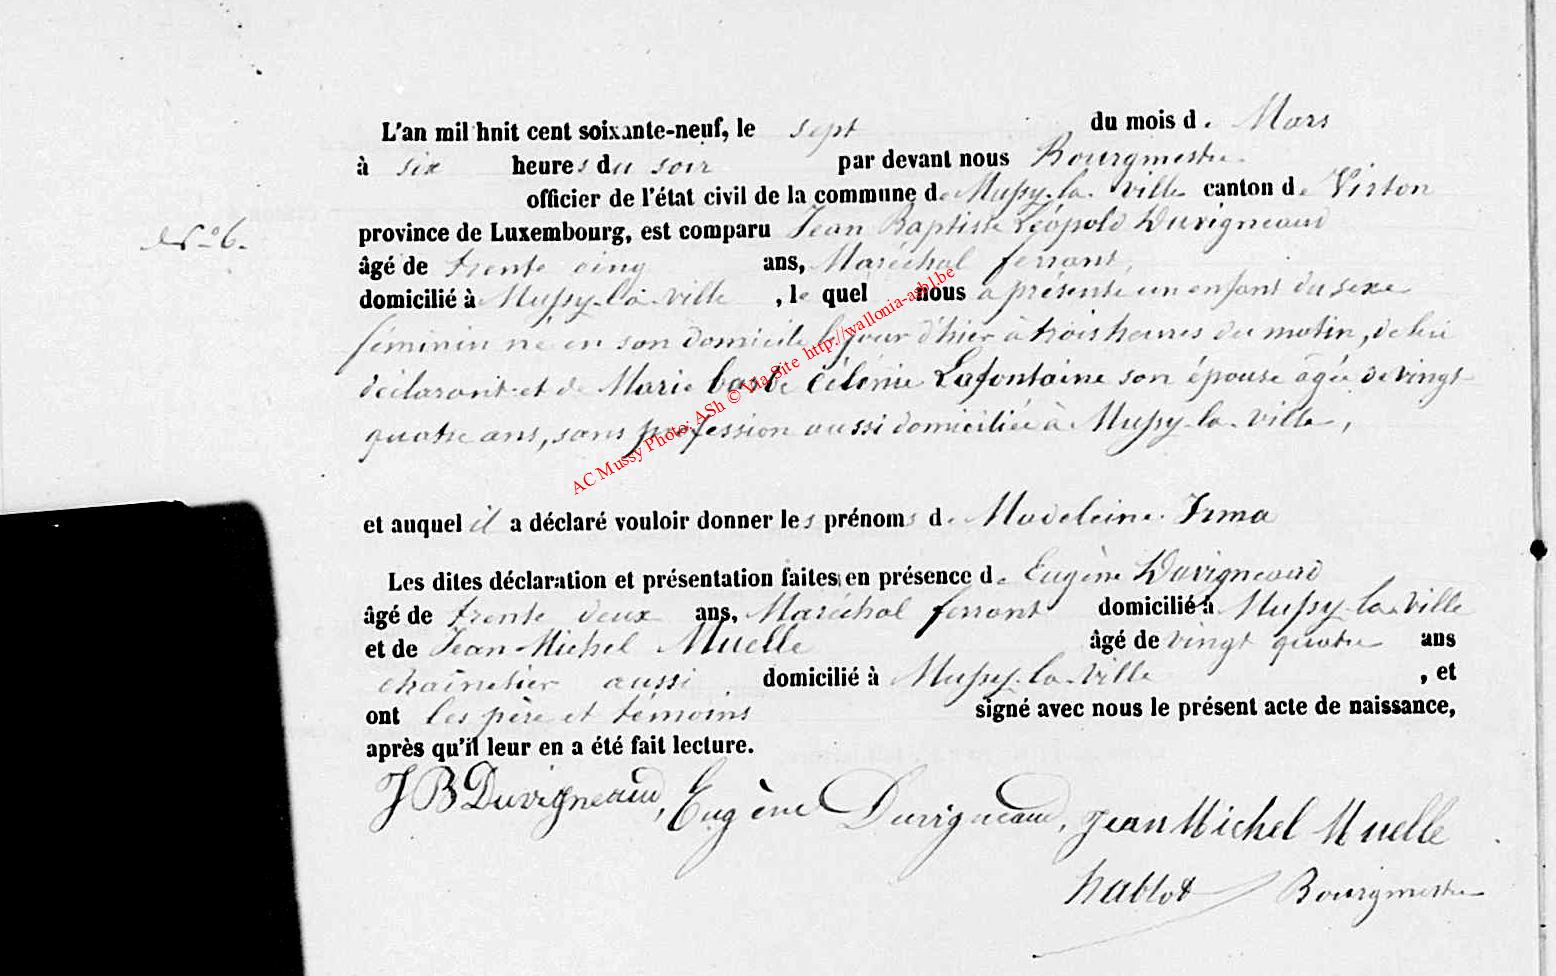 L'an mil huit cent soixante-neuf, le sept du mois de Mars
à six heures du soir par devant nous Bourgmestre
officier de l'état civil de la commune de Mussy-la-ville canton de Virton
N° 6.
province de Luxembourg, est comparu Jean Baptiste Léopold Duvigneaud
âgé de trente cinq ans, Maréchal ferrant,
domicilié à Mussy-la-ville , le quel nous a présenté un enfant du sexe
féminin né en son domicile le jour d'hier à trois heures du matin, de lui
déclarant et de Marie barbe Célénie Lafontaine son épouse âgée de vingt
quatre ans, sans profession aussi domiciliée à Mussy-la-ville,
AC Mussy Photo: ASh © Via Site http://wallonia-asbl.be
et auquel il a déclaré vouloir donner les prénoms de Madeleine Irma
Les dites déclaration et présentation faites en présence de Eugène Duvigneaud
âgé de trente deux ans, Maréchal ferrant domicilié à Mussy-la-ville
et de Jean Michel Muelle âgé de vingt quatre ans
aussi domicilié à Mussy-la-ville , et
ont les père et témoins signé avec nous le présent acte de naissance,
après qu'il leur en a été fait lecture.
J B Duvigneaud, Eugène Duvigneaud, Jean Michel Muelle
hablot Bourgmestre